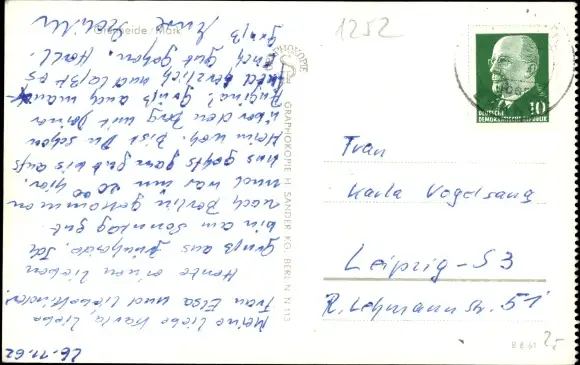 26.11.62
Meine liebe Karla, liebe
Frau Elsa und liebe Kinder!
Heute einen lieben
Gruß aus Grünheide. Ich
bin am Sonntag gut
nach Berlin gekommen
und war um 20.00 hier.
uns gehts ganz gut bis aufs
Heimweh. Bist Du schon
über den Berg mit Deiner
Angina? Grüß auch
und herzlich und laßt es
Euch gut gehen. Herzl.
Gruß
Eure
Grünheide/Mark
GRAPHOKOPIE
GRAPHOKOPIE H. SANDER KG, BERLIN N 113
1252
10
DEUTSCHE
DEMOKRATISCHE REPUBLIK
Frau
Karla Vogelsang
Leipzig-S3
R. Lehmannstr. 51
B 8/61
25